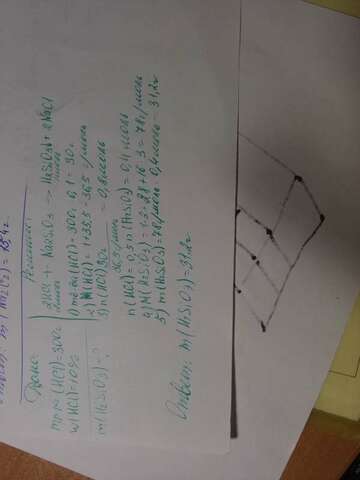 m(Na₂CO₃) = 15,4г
Дано:
mр-ра(HCl)=300г
w(HCl)=10%
m(H₂SiO₃)-?
Решение:
2HCl + Na₂SiO₃ → H₂SiO₃↓ + 2NaCl
1) mв-ва(HCl)=300г · 0,1 = 30г
2) M(HCl)=1+35,5=36,5г/моль
3) n(HCl)=30г
36,5г/моль
= 0,8моль
n(HCl)=0,5n(H₂SiO₃)=0,4моль
4) M(H₂SiO₃)=1·2+28+16·3=78г/моль
5) m(H₂SiO₃)=78г/моль · 0,4моль = 31,2г
Ответ: m(H₂SiO₃)=31,2г